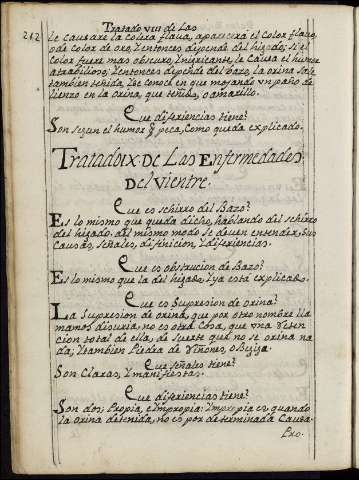 Tratado VIII de Las
242
le causare la Colera flaua, aparecerá el Color flauo,
o de Color de oro, Y entonces depende del higado; si el
Color fuere mas obscuro, Y nigricante, le Causa el humor
atrabilioso; Y entonces depende del bazo, la orina sale
tambien teñida, Y se conoce en que mojando un paño de
lienzo en la orina, que teñido, o amarillo.
Que diferiencias tiene?
Son segun el humor q peca, Como queda explicado.
Tratado IX. De Las Enfermedades
Del Vientre.
Que es schirro del Bazo?
Es lo mismo que queda dicho, hablando del schirro
del higado. del mismo modo se deven entender, sus
Causas, señales, difinicion, Y diferiencias.
Que es obstrucion de Bazo?
Es lo mismo que la del higado, Y ya está explicada.
Que es Supresion de orina?
La Supresion de orina, que por otro nombre lla
mamos discuria, no es otra Cosa, que vna reten
cion total de ella, de suerte que no se orina na
da; Y tambien Piedra de riñones, o Bejiga.
Que señales tiene?
Son Claras, Y manifiestas.
Que diferiencias tiene?
Son dos; Propia, e Impropia; Impropia es quando
la orina detenida, no es por determinada Causa.
Pro.